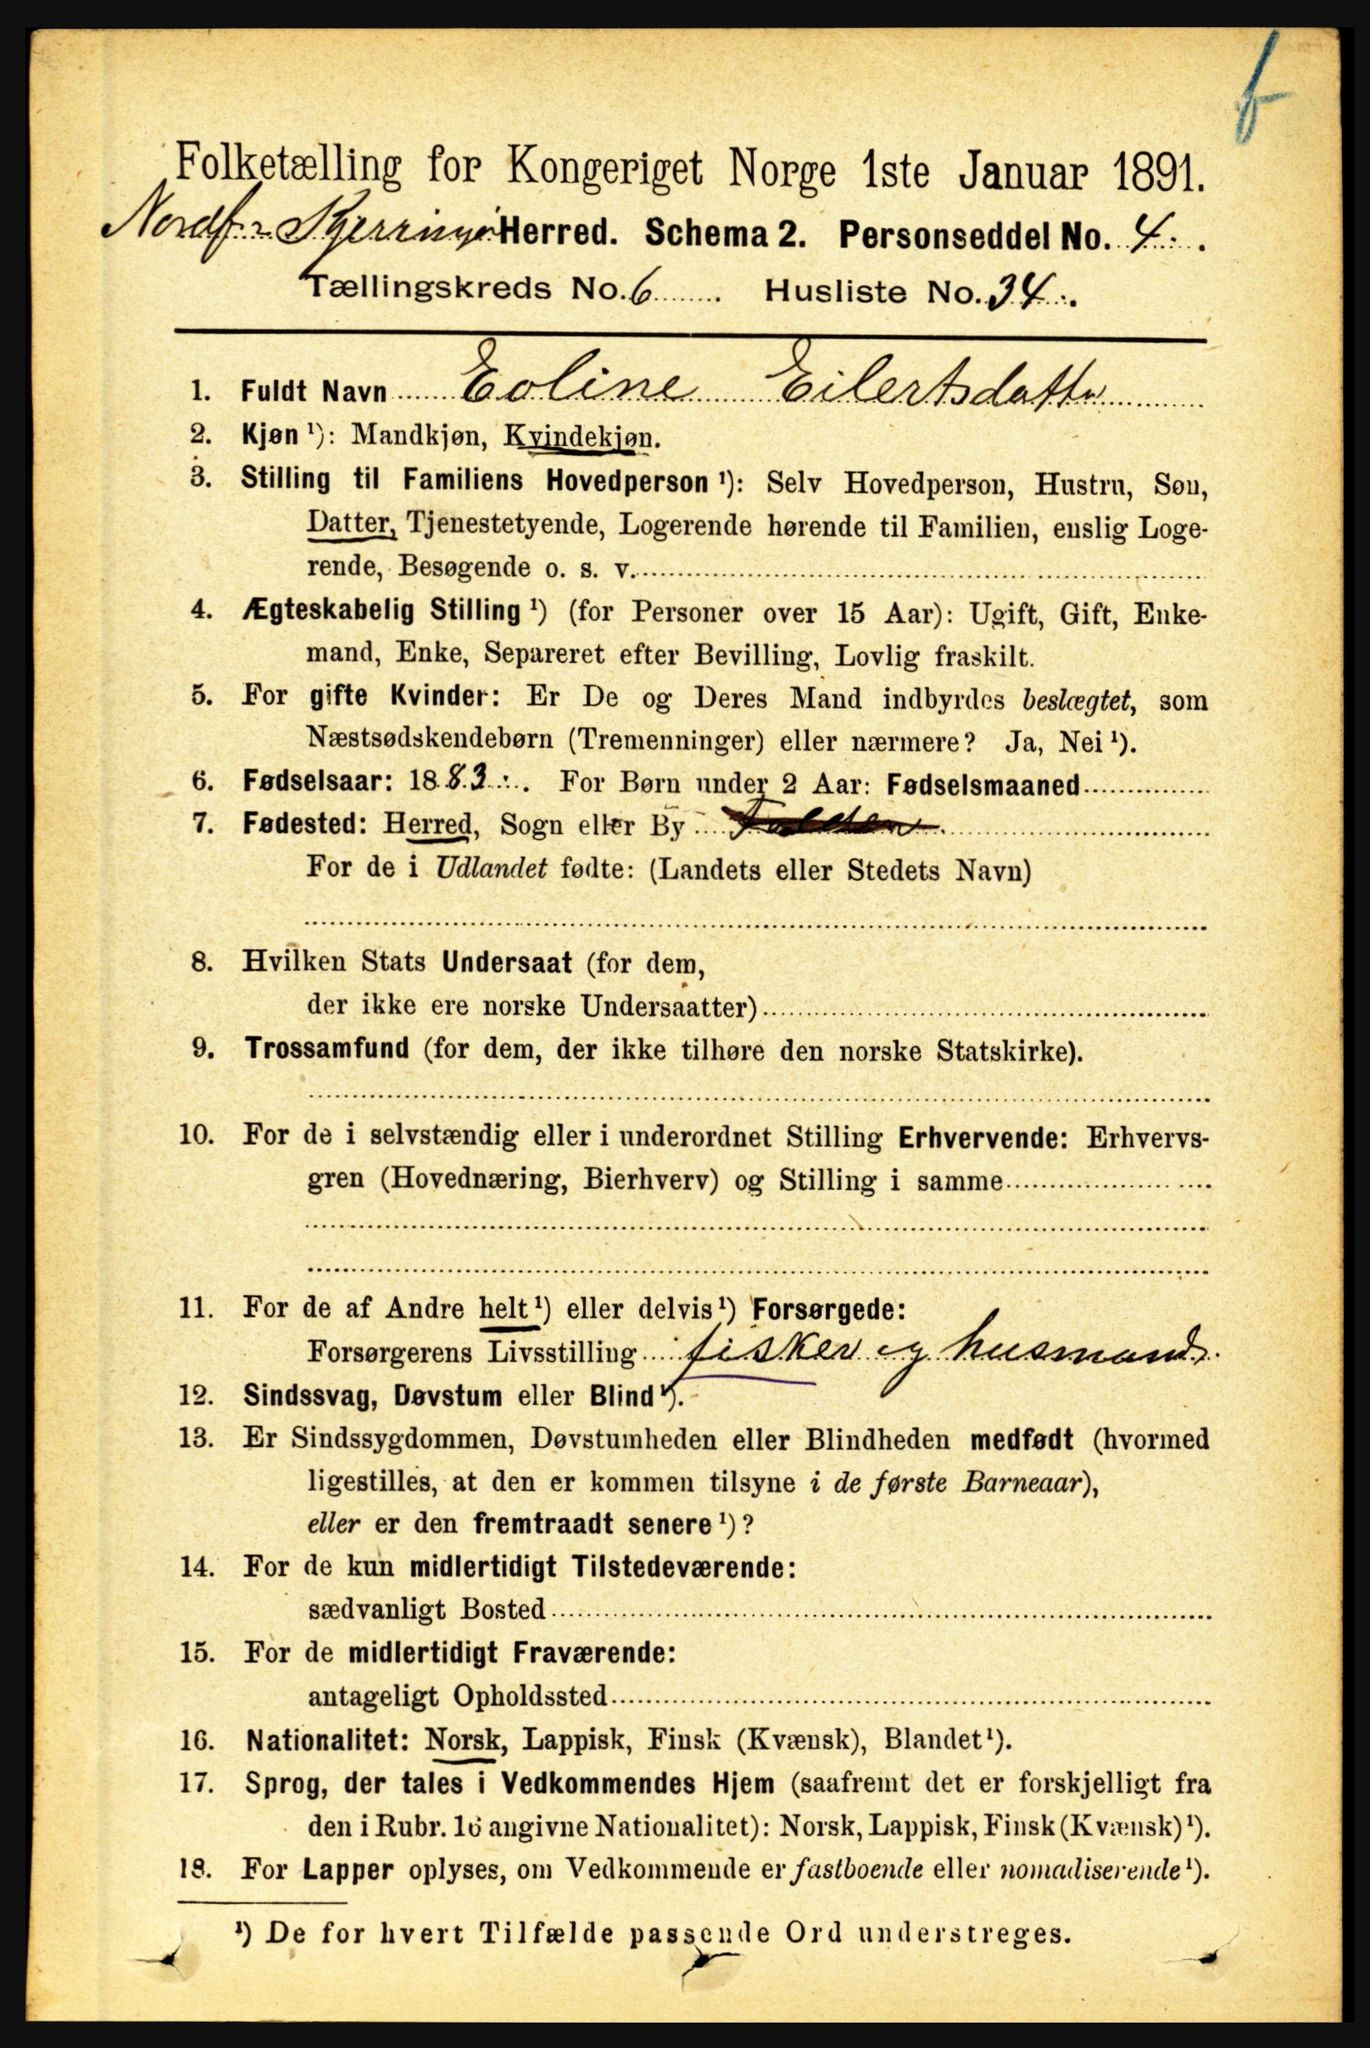 f
Folketælling for Kongeriget Norge 1ste Januar 1891.
Nordf. Kjerringø Herred. Schema 2. Personseddel No. 4.
Tællingskreds No. 6 Husliste No. 34.
1. Fuldt Navn Eoline Eilertsdatter
2. Kjøn ¹): Mandkjøn, Kvindekjøn.
3. Stilling til Familiens Hovedperson ¹): Selv Hovedperson, Hustru, Søn,
Datter, Tjenestetyende, Logerende hørende til Familien, enslig Loge-
rende, Besøgende o. s. v.
4. Ægteskabelig Stilling ¹) (for Personer over 15 Aar): Ugift, Gift, Enke-
mand, Enke, Separeret efter Bevilling, Lovlig fraskilt.
5. For gifte Kvinder: Er De og Deres Mand indbyrdes beslægtet, som
Næstsødskendebørn (Tremenninger) eller nærmere? Ja, Nei ¹).
6. Fødselsaar: 1883. For Børn under 2 Aar: Fødselsmaaned
7. Fødested: Herred, Sogn eller By Folden
For de i Udlandet fødte: (Landets eller Stedets Navn)
8. Hvilken Stats Undersaat (for dem,
der ikke ere norske Undersaatter)
9. Trossamfund (for dem, der ikke tilhøre den norske Statskirke).
10. For de i selvstændig eller i underordnet Stilling Erhvervende: Erhvervs-
gren (Hovednæring, Bierhverv) og Stilling i samme
11. For de af Andre helt ¹) eller delvis ¹) Forsørgede:
Forsørgerens Livsstilling fisker og husmand.
12. Sindssvag, Døvstum eller Blind ¹).
13. Er Sindssygdommen, Døvstumheden eller Blindheden medfødt (hvormed
ligestilles, at den er kommen tilsyne i de første Barneaar),
eller er den fremtraadt senere ¹)?
14. For de kun midlertidigt Tilstedeværende:
sædvanligt Bosted
15. For de midlertidigt Fraværende:
antageligt Opholdssted
16. Nationalitet: Norsk, Lappisk, Finsk (Kvænsk), Blandet ¹).
17. Sprog, der tales i Vedkommendes Hjem (saafremt det er forskjelligt fra
den i Rubr. 16 angivne Nationalitet): Norsk, Lappisk, Finsk (Kvænsk) ¹).
18. For Lapper oplyses, om Vedkommende er fastboende eller nomadiserende ¹).
¹) De for hvert Tilfælde passende Ord understreges.